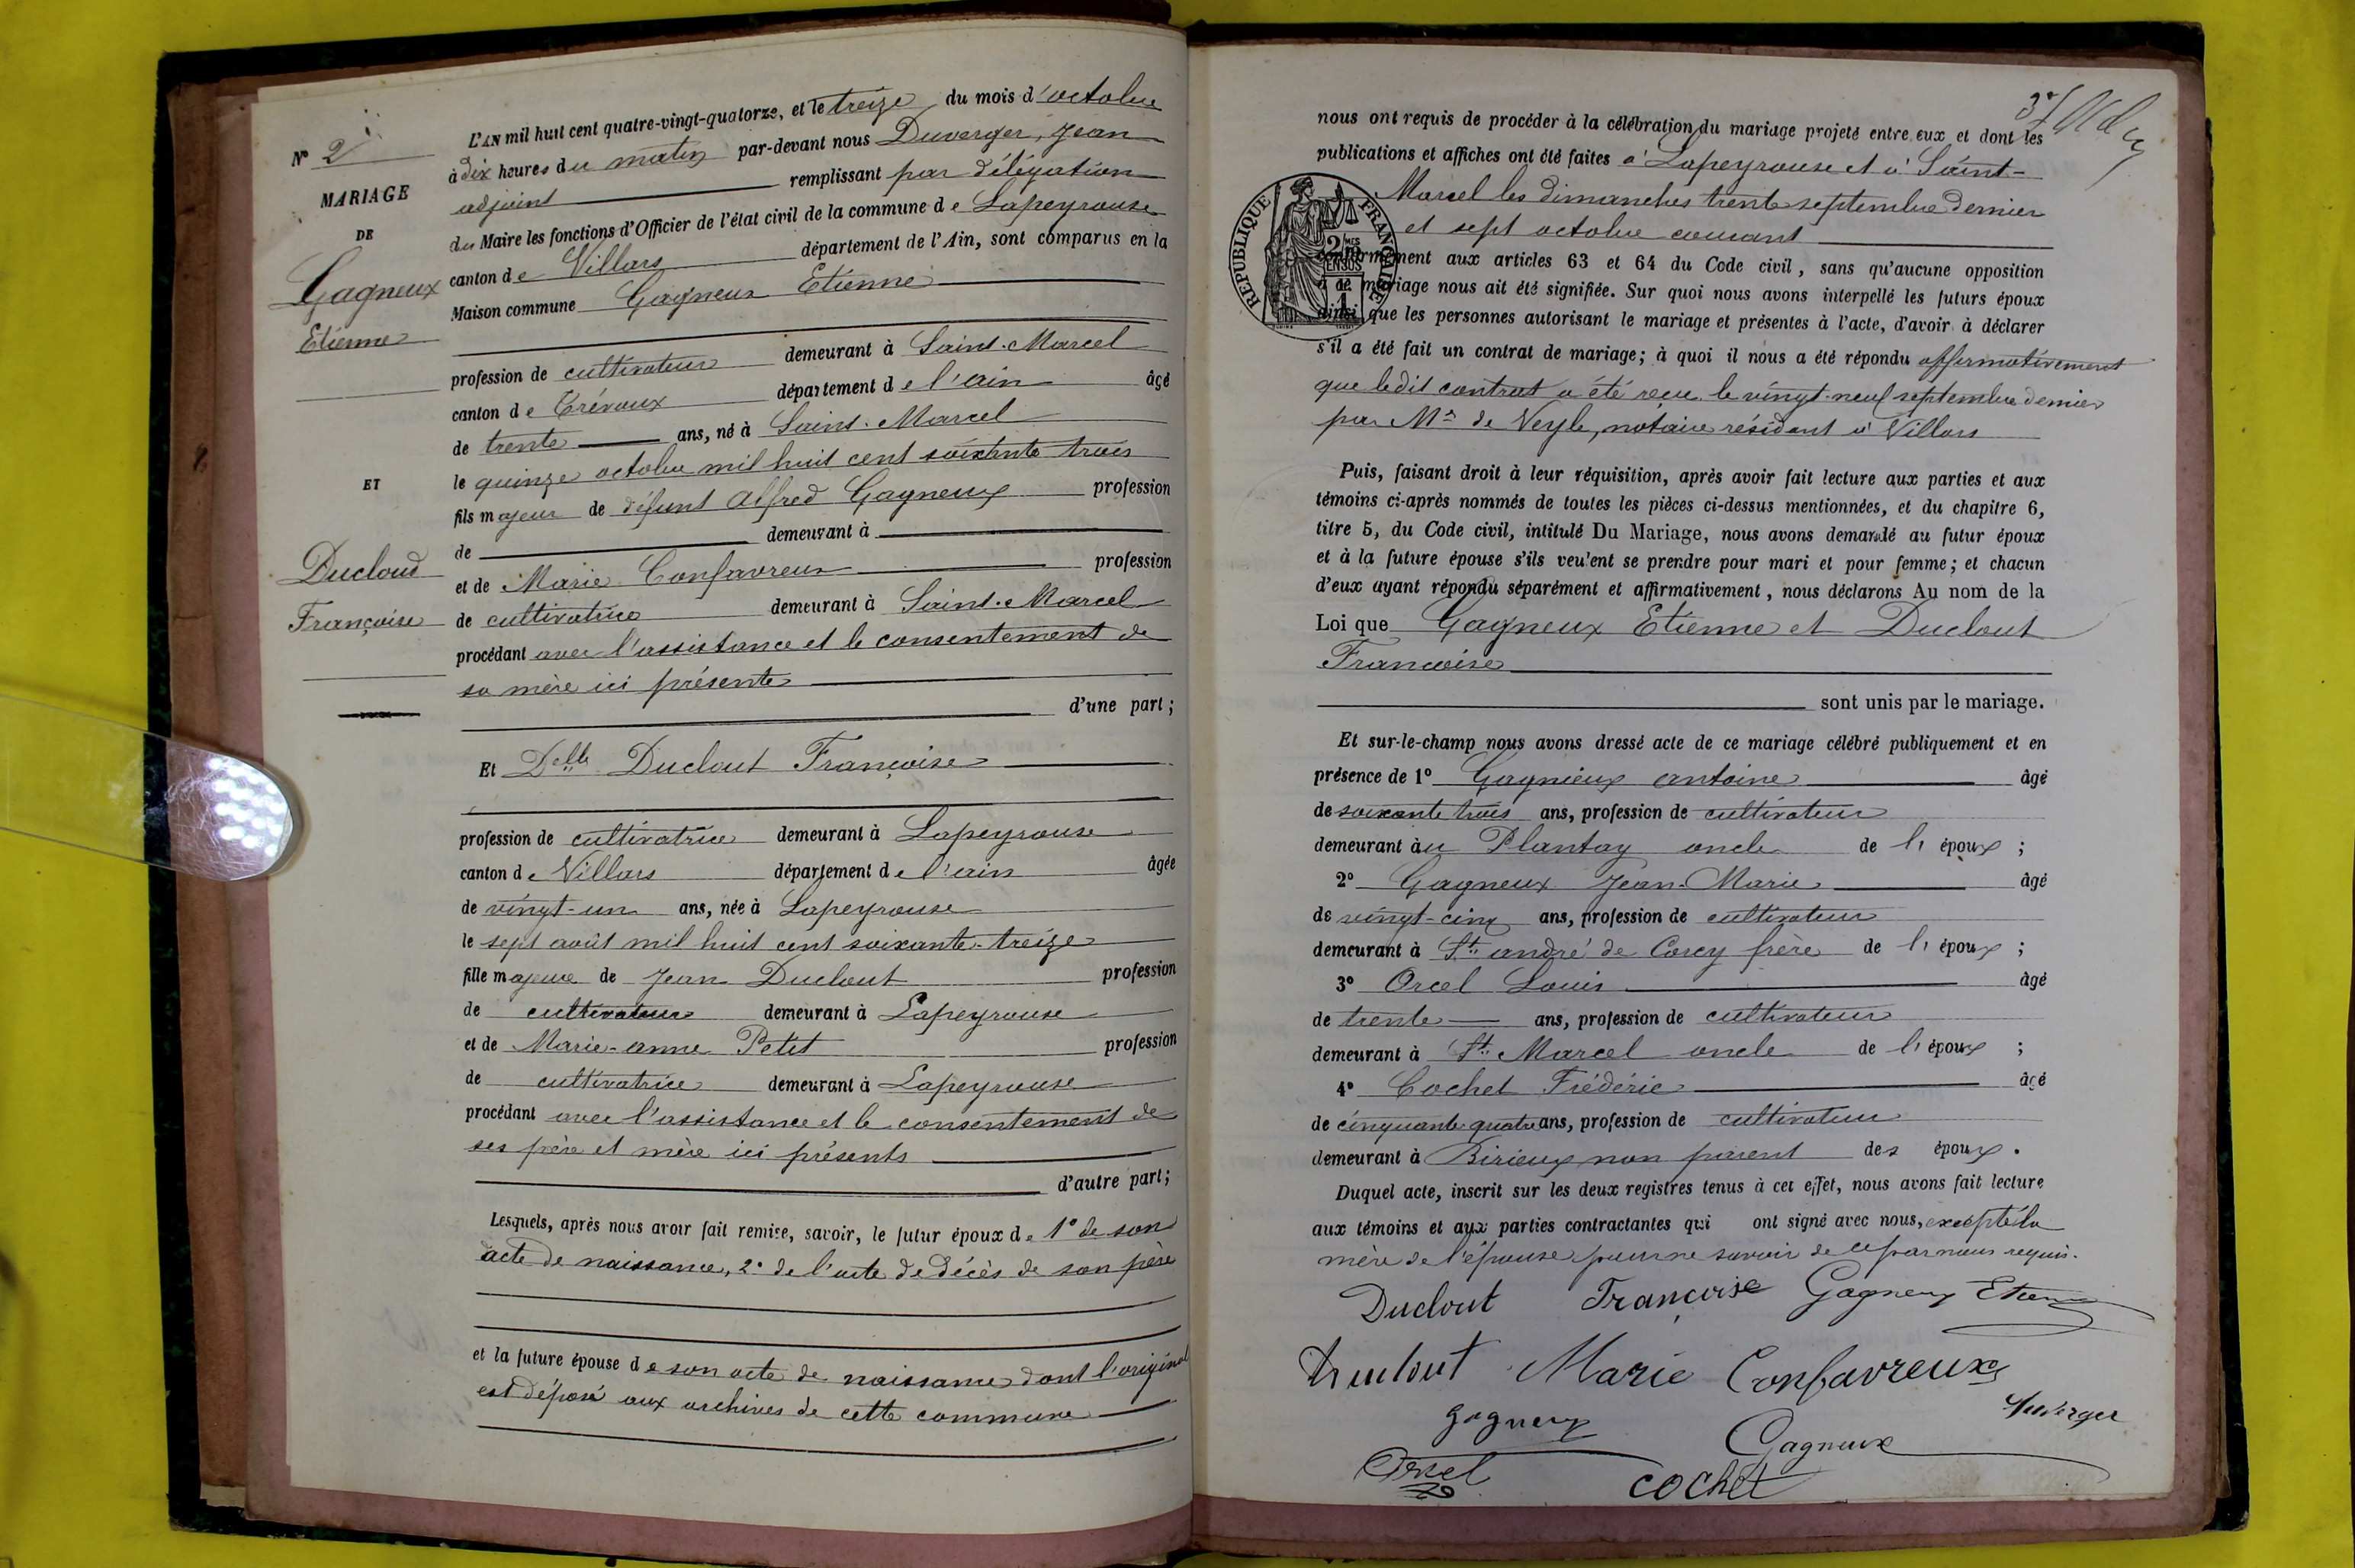 N° 2
MARIAGE
DE
Gagneux
Etienne
ET
Ducloud
Françoise
L'AN mil huit cent quatre-vingt-quatorze, et le treize du mois d'octobre
à dix heures du matin par-devant nous Duverger, Jean
adjoint remplissant par délégation
du Maire les fonctions d'Officier de l'état civil de la commune de Lapeyrouse
canton de Villars département de l'Ain, sont comparus en la
Maison commune Gagneux Etienne
profession de cultivateur demeurant à Saint-Marcel
canton de Trévoux département de l'ain âgé
de trente ans, né à Saint-Marcel
le quinze octobre mil huit cent soixante trois
fils majeur de défunt Alfred Gagneux profession
de demeurant à
et de Marie Confavreux profession
de cultivatrice demeurant à Saint-Marcel
procédant avec l'assistance et le consentement de
sa mère ici présente
d'une part;
Et Delle Duclout Françoise
profession de cultivatrice demeurant à Lapeyrouse
canton de Villars département de l'ain âgée
de vingt-un ans, née à Lapeyrouse
le sept août mil huit cent soixante-treize
fille majeure de Jean Duclout profession
de cultivateur demeurant à Lapeyrouse
et de Marie-anne Petit profession
de cultivatrice demeurant à Lapeyrouse
procédant avec l'assistance et le consentement de
ses père et mère ici présents
d'autre part;
Lesquels, après nous avoir fait remise, savoir, le futur époux de 1° de son
acte de naissance, 2° de l'acte de décès de son père
et la future épouse de son acte de naissance dont l'original
est déposé aux archives de cette commune
nous ont requis de procéder à la célébration du mariage projeté entre eux et dont les
publications et affiches ont été faites à Lapeyrouse et à Saint-
Marcel les dimanches trente septembre dernier
et sept octobre courant
RÉPUBLIQUE FRANÇAISE
conformément aux articles 63 et 64 du Code civil, sans qu'aucune opposition
à ce mariage nous ait été signifiée. Sur quoi nous avons interpellé les futurs époux
ainsi que les personnes autorisant le mariage et présentes à l'acte, d'avoir à déclarer
s'il a été fait un contrat de mariage; à quoi il nous a été répondu affirmativement
que ledit contrat a été reçu le vingt-neuf septembre dernier
par Me de Veyle, notaire résidant à Villars
Puis, faisant droit à leur réquisition, après avoir fait lecture aux parties et aux
témoins ci-après nommés de toutes les pièces ci-dessus mentionnées, et du chapitre 6,
titre 5, du Code civil, intitulé Du Mariage, nous avons demandé au futur époux
et à la future épouse s'ils veulent se prendre pour mari et pour femme; et chacun
d'eux ayant répondu séparément et affirmativement, nous déclarons Au nom de la
Loi que Gagneux Etienne et Duclout
Françoise
sont unis par le mariage.
Et sur-le-champ nous avons dressé acte de ce mariage célébré publiquement et en
présence de 1° Gagnieux antoine âgé
de soixante trois ans, profession de cultivateur
demeurant au Plantay oncle de l' époux ;
2° Gagneux Jean-Marie âgé
de vingt-cinq ans, profession de cultivateur
demeurant à St andré de Corcy frère de l' époux ;
3° Orcel Louis âgé
de trente ans, profession de cultivateur
demeurant à St Marcel oncle de l' époux ;
4° Cochet Frédéric âgé
de cinquante-quatre ans, profession de cultivateur
demeurant à Birieux non parent des époux.
Duquel acte, inscrit sur les deux registres tenus à cet effet, nous avons fait lecture
aux témoins et aux parties contractantes qui ont signé avec nous, excepté la
mère de l'épouse pour ne savoir de ce par nous requis.
Duclout Françoise Gagneux Etienne
Duclout Marie Confavreux
Duverger
Gagneux
Gagneux
Orcel
COCHET